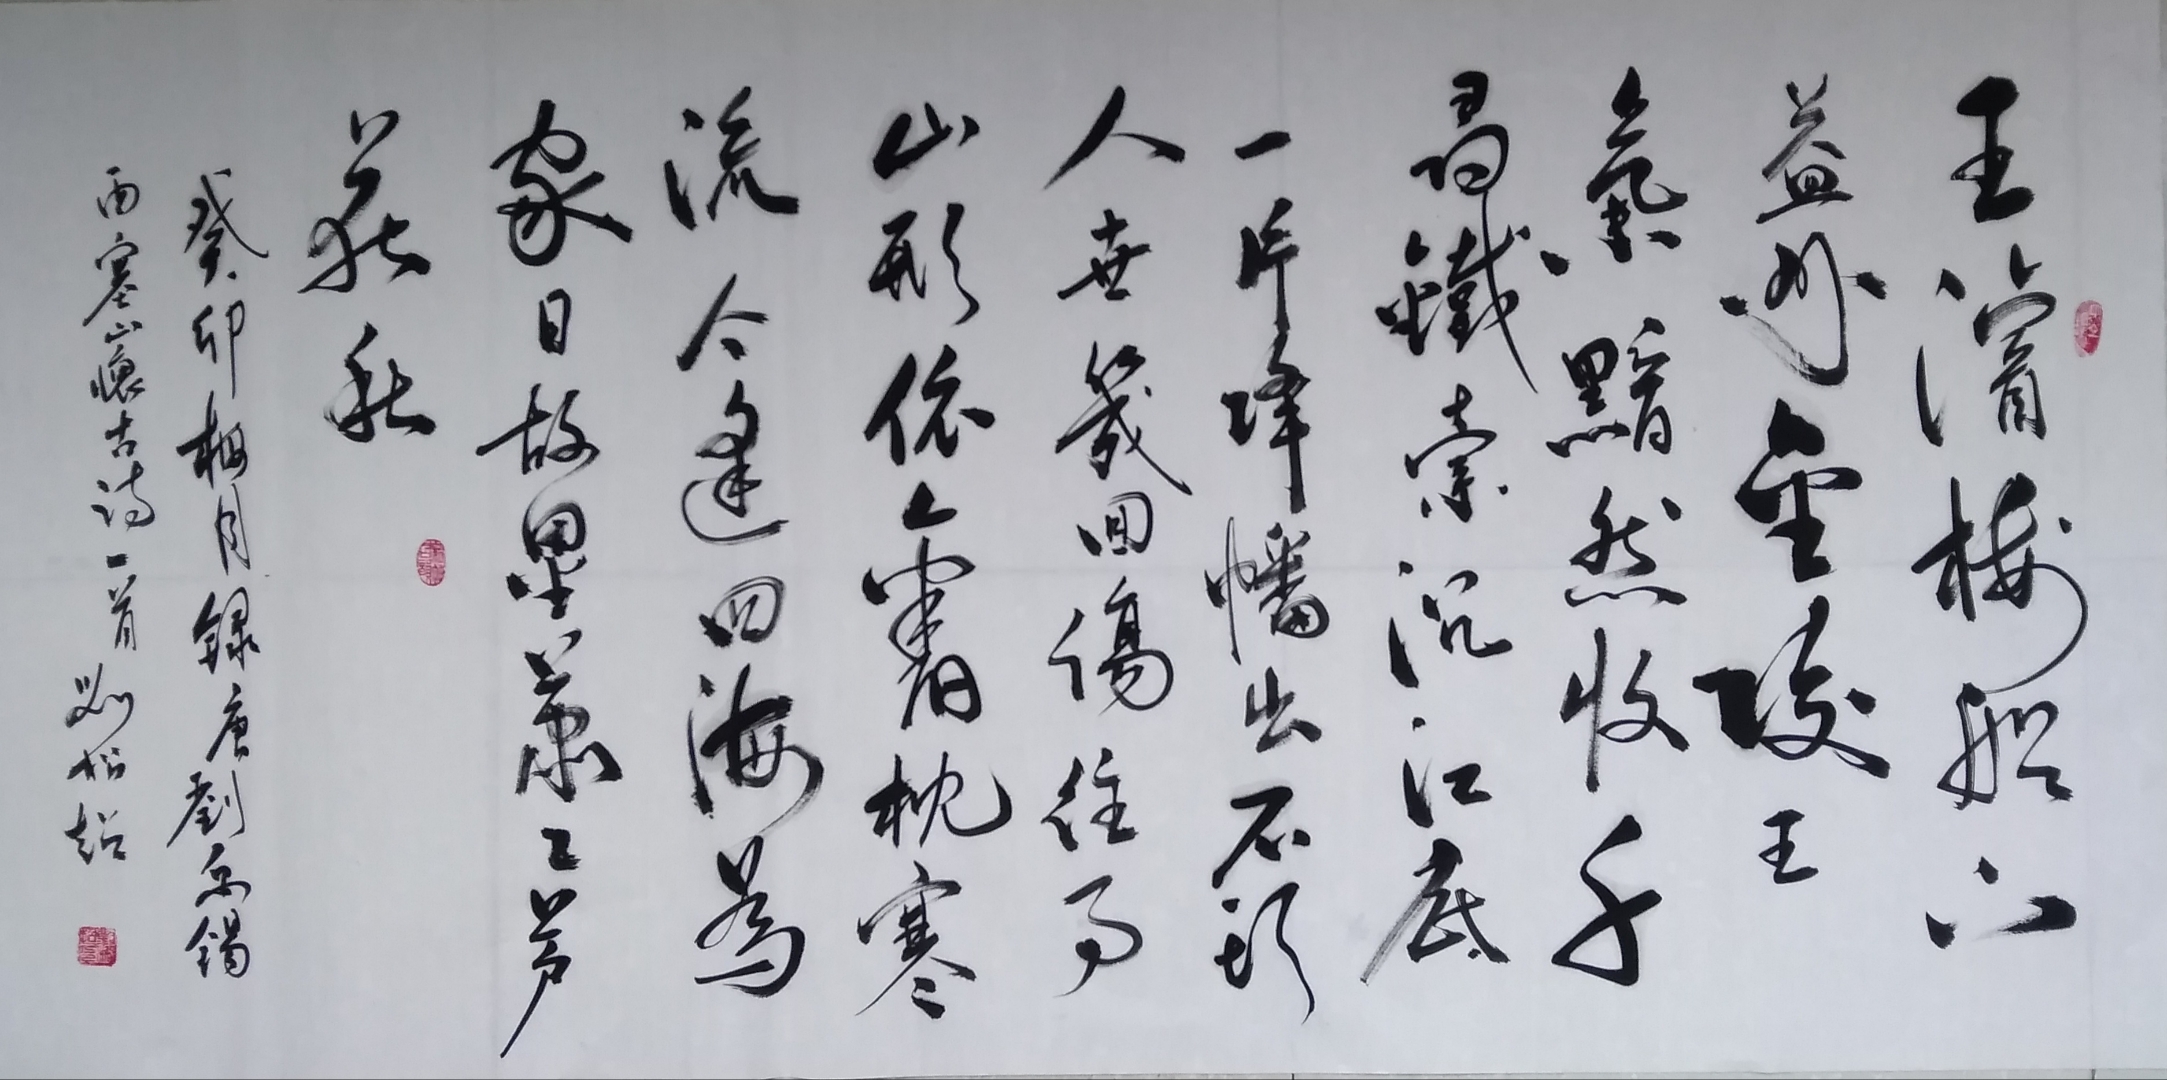 王濬樓船下
益州金陵王
氣黯然收千
尋鐵索沉江底
一片降幡出石頭
人世幾回傷往事
山形依舊枕寒
流今逢四海為
家日故壘蕭々芦
荻秋
癸卯梅月錄唐劉禹錫
西塞山懷古詩一首